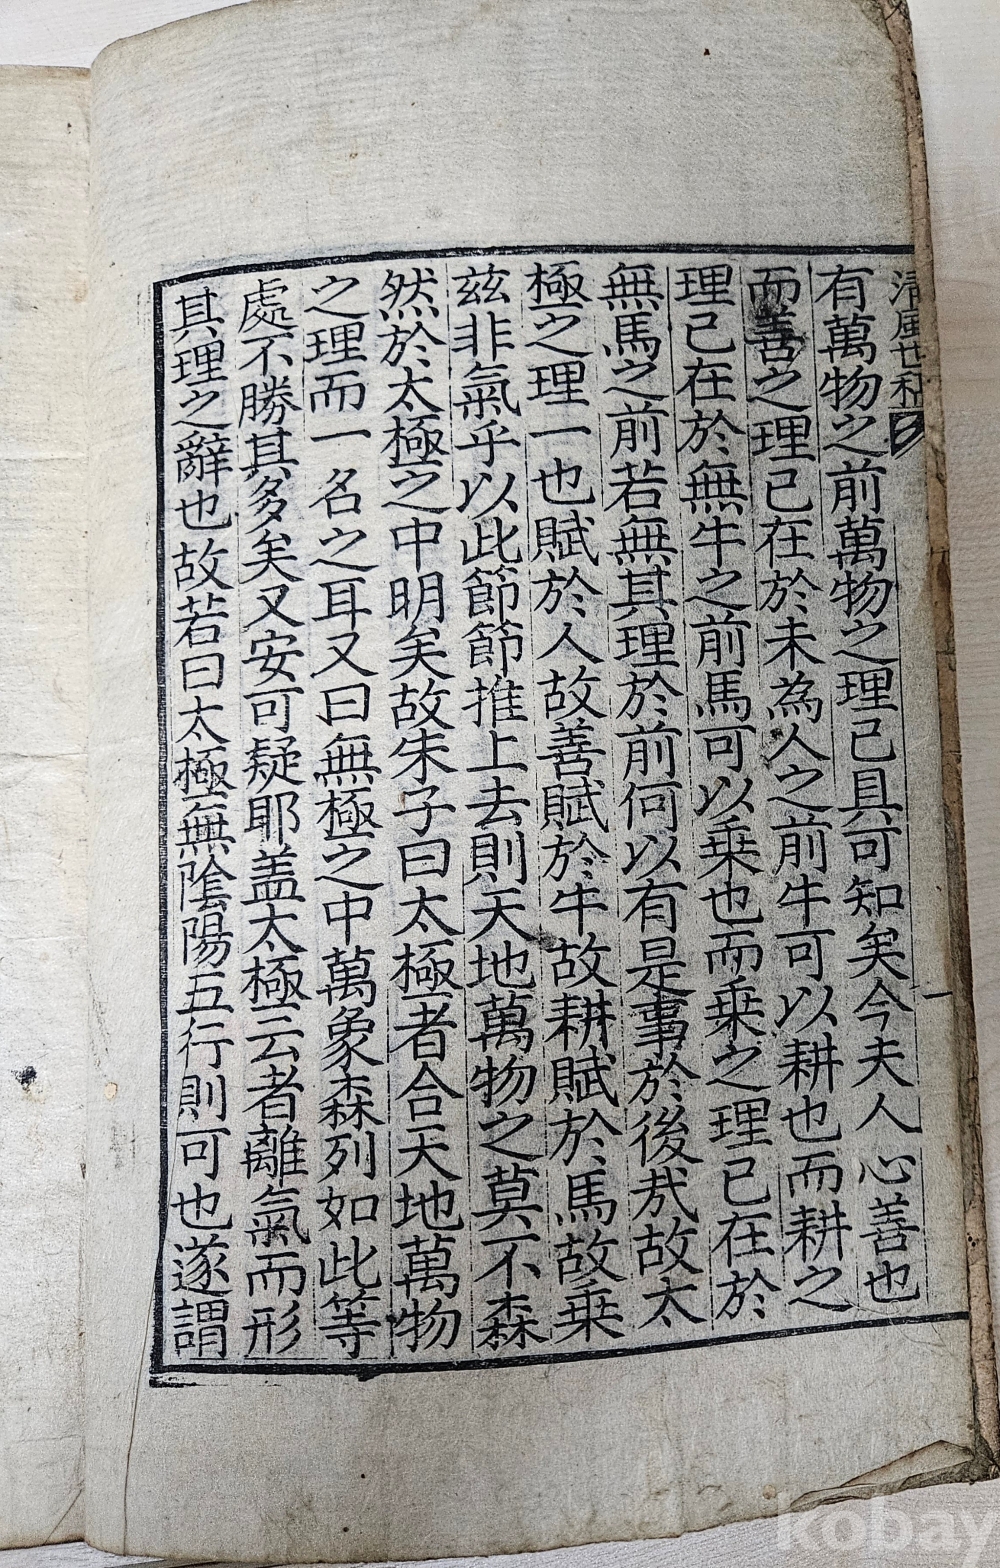 有萬物之前萬物之理已具可知矣今夫人心善也
而善之理已在於未為人之前牛可以耕也而耕之
理已在於無牛之前馬可以乗也而乗之理已在於
無馬之前若無其理於前何以有是事於後㢤故太
極之理一也賦於人故善賦於牛故耕賦於馬故乗
兹非氣乎以此節節推上去則天地萬物之莫不森
然於太極之中明矣故朱子曰太極者合天地萬物
之理而一名之耳又曰無極之中萬象森列如此等
處不勝其多矣又安可疑耶盖太極云者離氣而形
其理之辭也故若曰太極無陰陽五行則可也遂謂
kobay